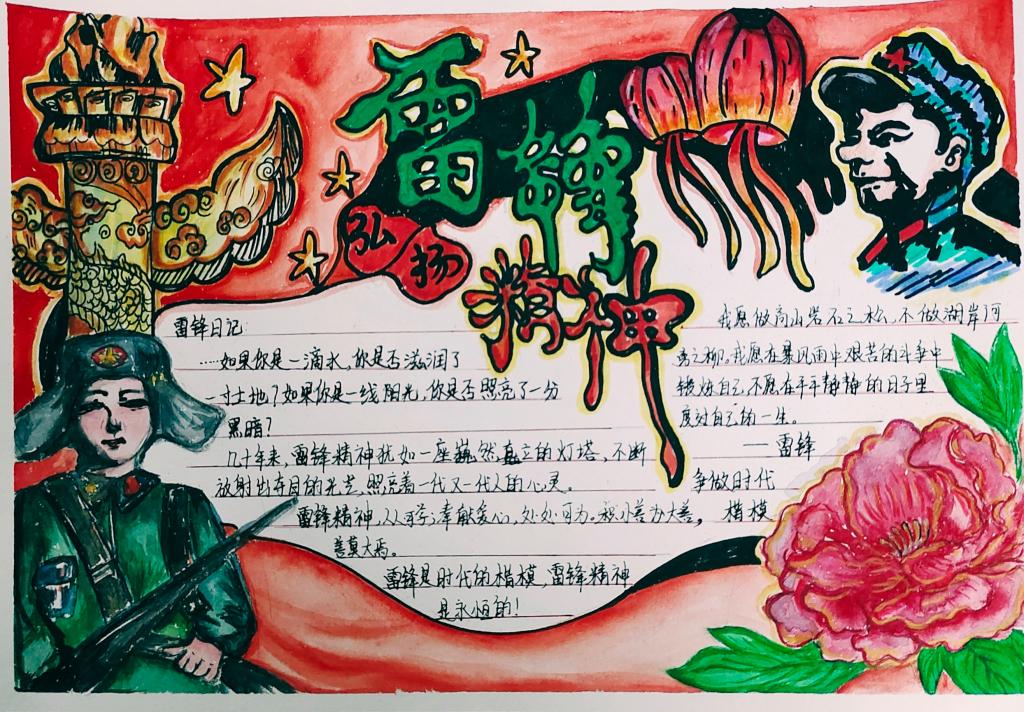 弘扬
雷锋
精神
雷锋日记
……如果你是一滴水，你是否滋润了
一寸土地？如果你是一线阳光，你是否照亮了一分
黑暗？
几十年来，雷锋精神犹如一座巍然直立的灯塔，不断
放射出夺目的光芒，照亮着一代又一代人的心灵。
雷锋精神，人人可学；奉献爱心，处处可为。积小善为大善，
善莫大焉。
雷锋是时代的楷模，雷锋精神
是永恒的！
我愿做高山岩石之松，不做湖岸河
旁之柳，我愿在暴风雨中艰苦的斗争中
锻炼自己，不愿在平平静静的日子里
度过自己的一生。
——雷锋
争做时代
楷模